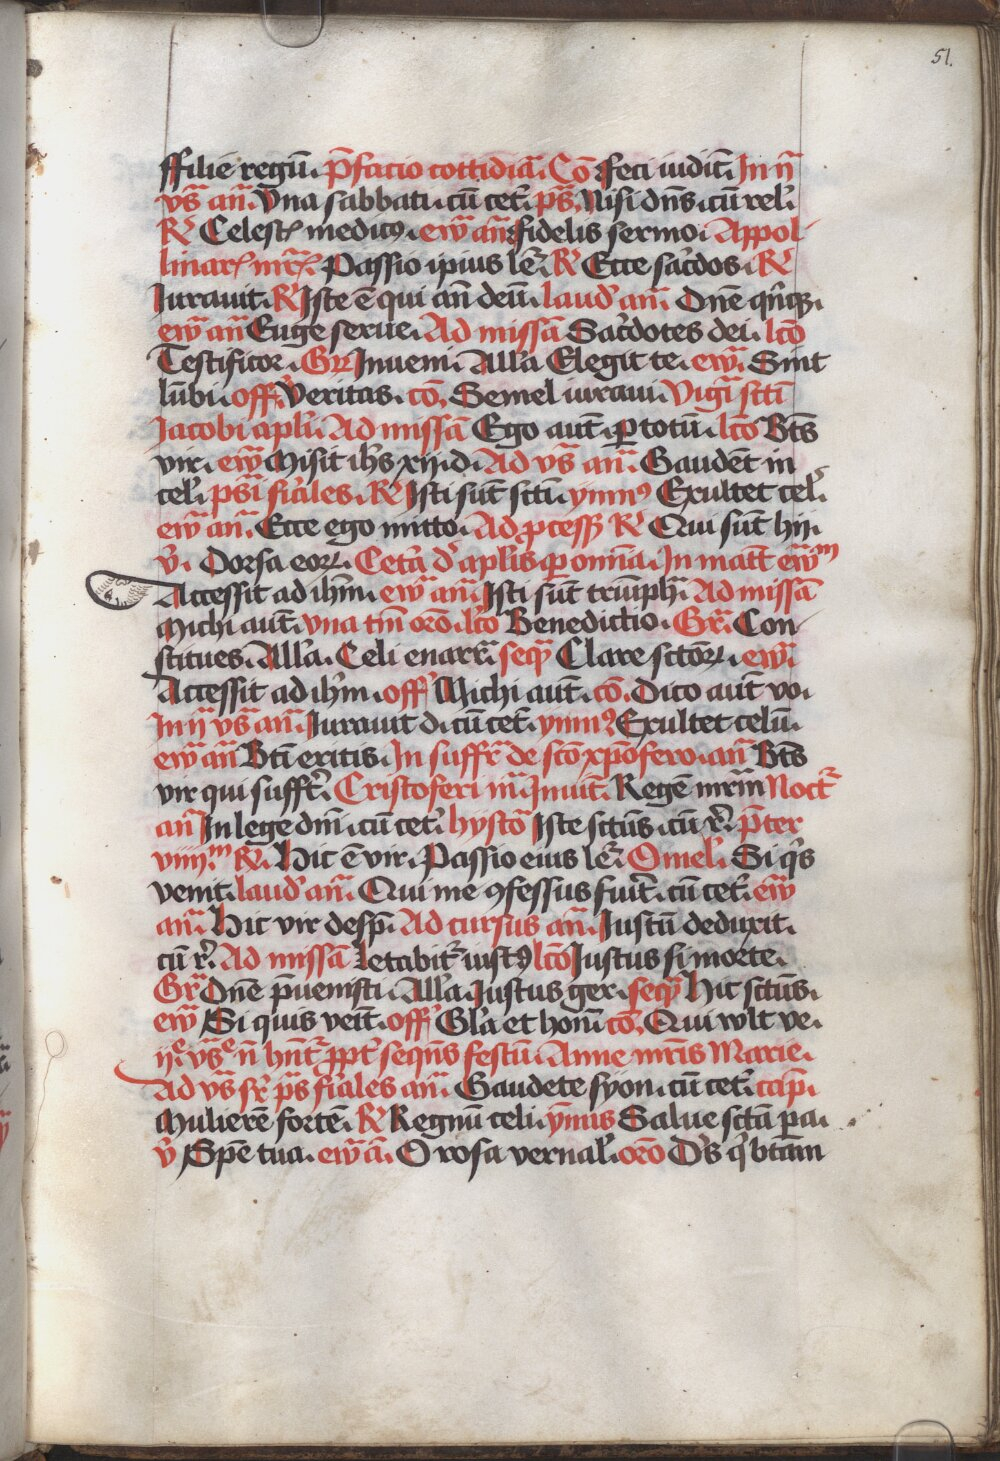 51.
ffilie regū. P̄facio cottidiā. Cō Feci iudiū. In ij
vs̄ an̄. Una sabbati. cū cet. ps̄. Nisi dn̄s. cū rel.
R Celest medicꝰ. ew̄ an̄ Fidelis sermo. Appol
linar mr̄. Passio ipius le. R Ecce sac̄dos. R
Iurauit. R Iste ē qui an̄ deū. laud an̄. Dn̄e qn̄qꝫ.
ew̄ an̄ Euge serue. Ad missā Sac̄dotes dei. lcō
Testificor. Gr Inueni. All'a Elegit te. ew̄. Sint
lūbi. off Veritas. cō. Semel iuraui. Vigīa scti
Iacobi apli. Ad missā Ego aut. ꝑ totū. lcō Bt̄s
vir. ew̄ Misit ih̄s xij. d. Ad vs̄ an̄. Gaudēt in
cel. psī fic̄ales. R Isti sūt scti. ymnꝰ Exultet cel.
ew̄ an̄. Ecce ego mitto. Ad ꝓcess R Qui sūt hij.
v̄. Dorsa eoꝝ. Cetā d' aplis ꝑ omīa. In matt ew̄m
Accessit ad ih̄m. ew̄ an̄. Isti sūt triūph. Ad missā
Michi aut. vna tm̄ orō. lcō Benedictio. Gr. Con
stitues. All'a. Celi enarr. seq Clare sctoꝝ. ew̄
Accessit ad ih̄m. off Michi aut. cō. Dico aut vo.
In ij vs̄ an̄. Iurauit d. cū cet. ymnꝰ Exultet celū.
ew̄ an̄ Bt̄i eritis. In suffr de sctō xp̄ofero. an̄ Bt̄s
vir qui suffert. Cristoferi m̄. Inuit. Regē mr̄m Noct
an̄ In lege dn̄i. cū cet. hystō Iste sctūs. cū r. p̄ter
viiij.m R. Hic ē vir. Passio eius le. Omel. Si q's
venit. laud an̄. Qui me ꝯfessus fuit. cū cet. ew̄
an̄. Hic vir desp. Ad cursus an̄. Iustū deduxit.
cū r. Ad missā Letabit iustꝰ lcō Iustus si morte.
Gr Dn̄e p̄uenisti. All'a. Iustus ger. seq Hic sctūs.
ew̄ Si quis veīt. off Gl'a et hon̄. cō. Qui wlt ve.
ije vs̄e n̄ hn̄t ꝓpt seqn̄s festū. Anne mr̄is Marie.
Ad vs̄ sr ps̄ fic̄ales an̄. Gaudete syon. cū cet. cap.
Mulierē fortē. R Regnū celi. ymus Salue sctā pa.
v̄ Spē tua. ew̄ ā. O rosa vernal. orō D's q' btām